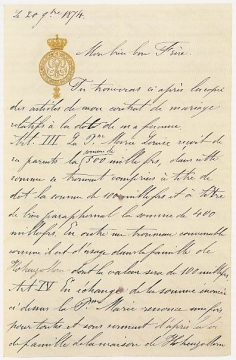 le 20 9bre 1874.
Mon bien bon Frère.
Tu trouveras ci après la copie
des articles de mon contrat de mariage
relatifs à la dot de ma femme
Art. III La Psse Marie Louise reçoit de
ses parents la somme de 500 mille frs, dans cette
somme se trouvent comprises à titre de
dot la somme de 100 mille frs et à titre
de bien paraphernal la somme de 400
mille frs. En outre un trousseau convenable
comme il est d'usage dans la famille de
Hohenzollern dont la valeur sera de 100 mille frs.
Art IV En échange de la somme énoncée
ci dessus la Psse Marie renonce une fois
pour toute et sous serment d'après
de famille de la maison de Hohenzollern